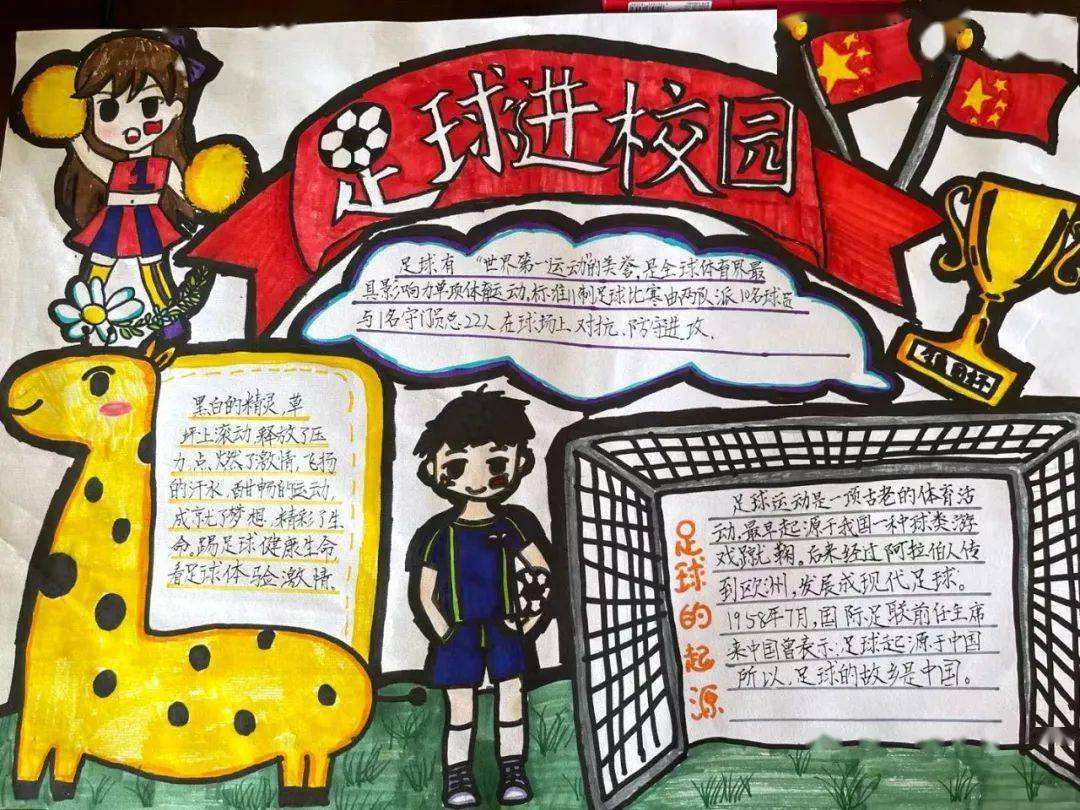 足球进校园
足球有“世界第一运动”的美誉,是全球体育界最
具影响力单项体育运动,标准11制足球比赛由两队派10名球员
与1名守门员总22人在球场上对抗、防守进攻.
黑白的精灵,草
坪上滚动,释放了压
力,点燃了激情,飞扬
的汗水,酣畅的运动,
成就了梦想,精彩了生
命。踢足球健康生命
看足球体验激情.
足球的起源
足球运动是一项古老的体育活
动,最早起源于我国一种球类游
戏蹴鞠。后来经过阿拉伯人传
到欧洲,发展成现代足球。
1958年7月,国际足联前任主席
来中国曾表示:足球起源于中国
所以,足球的故乡是中国。
1
杯